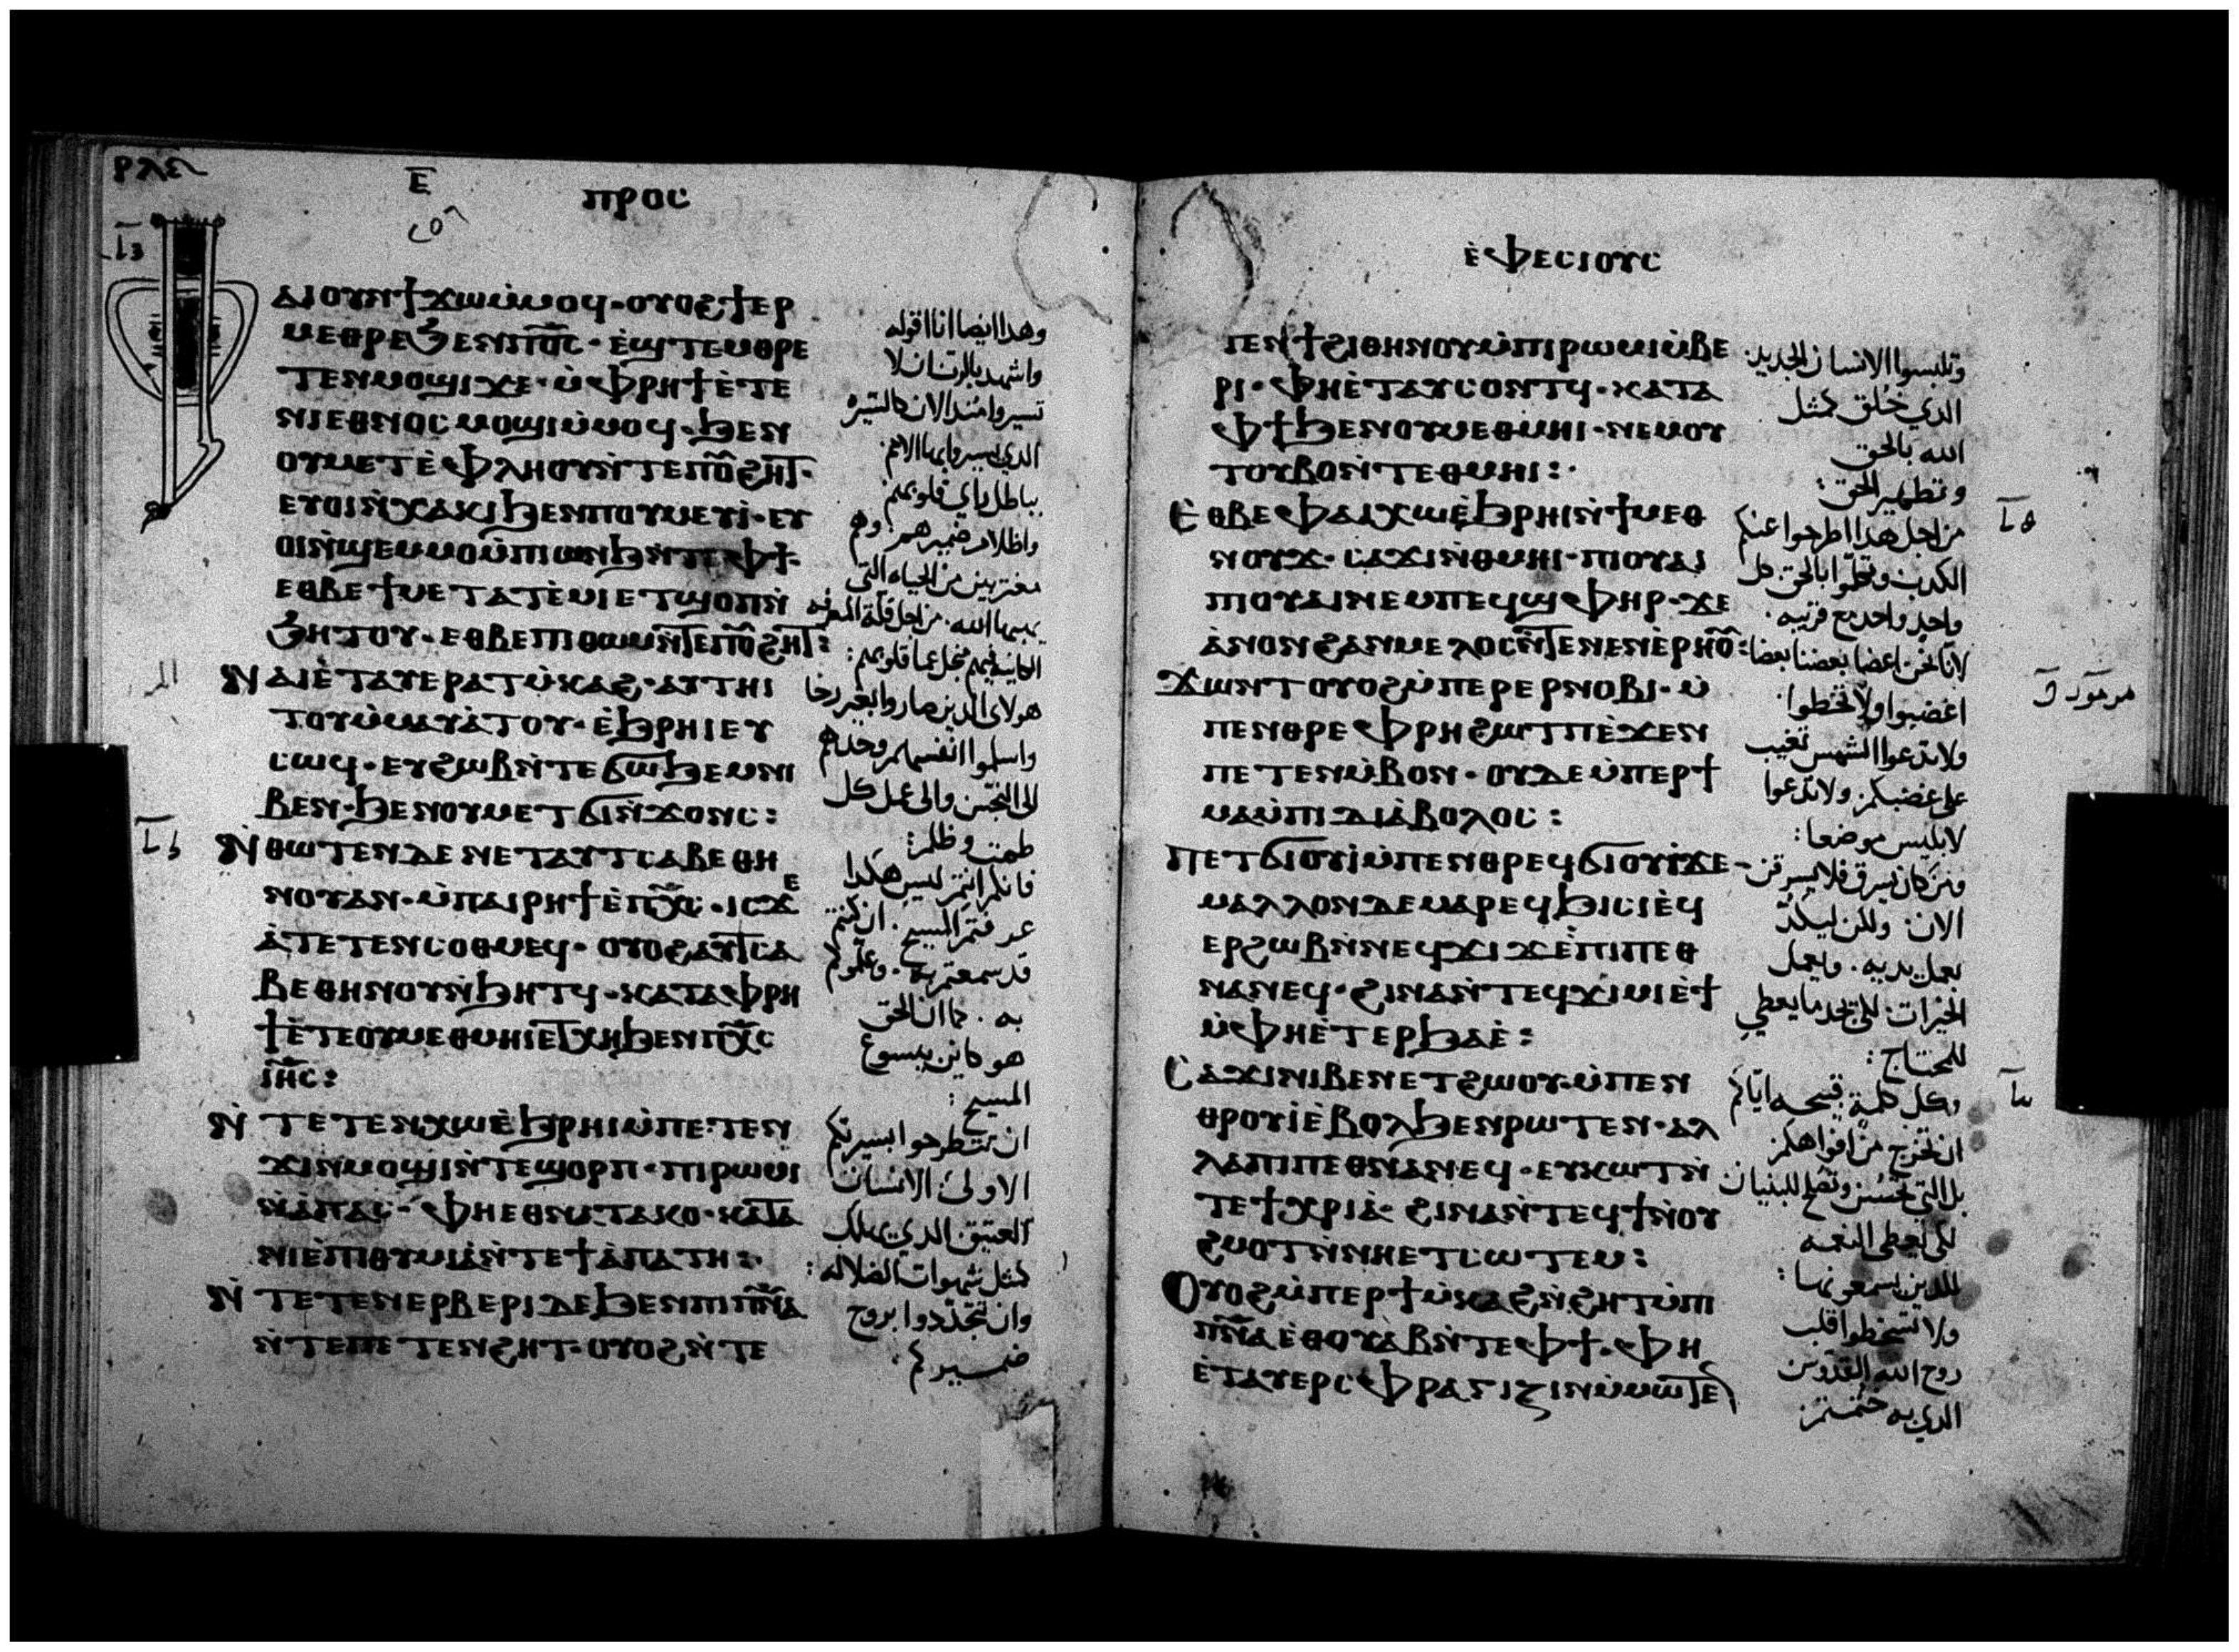 Ⲉ̅
ⲡⲣⲟⲥ
ⲫⲁⲓⲟⲩⲛϯϫⲱⲙ̀ⲙⲟϥ · ⲟⲩⲟϩϯⲉⲣ
ⲙⲉⲑⲣⲉϧⲉⲛⲡⲟ̅ⲥ̅ · ⲉ̀ϣⲧⲉⲙⲑⲣⲉ
ⲧⲉⲛⲙⲟϣⲓϫⲉ · ⲙ̀ⲫⲣⲏϯⲉ̀ⲧⲉ
ⲛⲓⲉⲑⲛⲟⲥⲙⲟϣⲓⲙ̀ⲙⲟϥ · ϧⲉⲛ
ⲟⲩⲙⲉⲧⲉ̀ⲫⲗⲏⲟⲩⲛ̀ⲧⲉⲡⲟ̅ϩⲏⲧ ·
ⲉⲩⲟⲓⲛ̀ⲭⲁⲕⲓϧⲉⲛⲡⲟⲩⲙⲉⲩⲓ̀ · ⲉⲩ
ⲟⲓⲛ̀ϣⲉⲙⲙⲟⲙ̀ⲡⲓⲱⲛϧⲛ̀ⲧⲉⲫϯ ·
ⲉⲑⲃⲉϯⲙⲉⲧⲁⲧⲉ̀ⲙⲓⲉⲧϣⲟⲡⲛ̀
ϧⲏⲧⲟⲩ · ⲉⲑⲃⲉⲡⲓⲑⲱⲙⲛ̀ⲧⲉⲡⲟ̅ϩⲏⲧ :
ⲛⲁⲓⲉ̀ⲧⲁⲩⲉⲣⲁⲧⲙ̀ⲕⲁϩ · ⲁⲩⲧⲏⲓ
ⲧⲟⲩⲙ̀ⲙⲁⲩⲁ̀ⲧⲟⲩ · ⲉ̀ϧⲣⲏⲓⲉⲩ
ⲥⲱϥ · ⲉⲩϩⲱⲃⲛ̀ⲧⲉϭⲱϧⲉⲙⲛⲓ
ⲃⲉⲛ · ϧⲉⲛⲟⲩⲙⲉⲧϭⲓⲛ̀ϫⲟⲛⲥ :
ⲛ̀ⲑⲱⲧⲉⲛⲇⲉⲛⲉⲧⲁⲩⲧⲥⲁⲃⲉⲑⲏ
ⲛⲟⲩⲁⲛ · ⲙ̀ⲡⲁⲓⲣⲏϯⲉ̀ⲡⲭ̅ⲥ̅ · ⲓⲥϫⲉ
ⲁ̀ⲧⲉⲧⲉⲛⲥⲟⲑⲙⲉϥ · ⲟⲩⲟϩⲁⲩⲧⲥⲁ
ⲃⲉⲑⲏⲛⲟⲩⲛ̀ϧⲏⲧϥ · ⲕⲁⲧⲁⲫⲣⲏ
ϯⲉ̀ⲧⲉⲟⲩⲙⲉⲑⲙⲏⲓⲉⲧⲭⲏϧⲉⲛⲡⲭ̅ⲥ̅
ⲓ̅ⲏ̅ⲥ̅ :
ⲛ̀ⲧⲉⲧⲉⲛⲭⲱⲉ̀ϧⲣⲏⲓⲙ̀ⲡⲉⲧⲉⲛ
ϫⲓⲛⲙⲟϣⲓⲛ̀ⲧⲉϣⲟⲣⲡ · ⲡⲓⲣⲱⲙⲓ
ⲛ̀ⲁ̀ⲡⲁⲥ · ⲫⲏⲉⲑⲛⲁⲧⲁⲕⲟ · ⲕⲁⲧⲁ
ⲛⲓⲉ̀ⲡⲓⲑⲩⲙⲓⲁ̀ⲛ̀ⲧⲉϯⲁ̀ⲡⲁⲧⲏ :
ⲛ̀ⲧⲉⲧⲉⲛⲉⲣⲃⲉⲣⲓⲇⲉϧⲉⲛⲡⲓⲡ̅ⲛ̅ⲁ̅
ⲛ̀ⲧⲉⲡⲉⲧⲉⲛϩⲏⲧ · ⲟⲩⲟϩⲛ̀ⲧⲉ
وهدا ايضا انا اقوله
واشهد بالرب ان لا
تسيروا مند الان كالسيره
الدي يسير وابها الامم
بباطل راي قلوبهم
واظلام ضميرهم وهم
مغتربين من الحياه التي
يهبها الله · من اجل قلة المعرفه
هولاي الدين صاروا بغير رجا
واسلموا انفسهم وحدهم
الى النجس والى عمل كل
طمث وظلم :
فانكم انتم ليس هكدا
عرفتم المسيح · ان كنتم
قد سمعتم به · وعلمتم
به · كما ان الحق
هو كاين بيسوع
المسيح :
ان تطرحوا بسيرتكم
الاولى الانسان
العتيق الدي يهلك
كمثل شهوات الضلاله :
وان تتجددوا بروح
ضميركم ·
ⲉ̀ⲫⲉⲥⲓⲟⲩⲥ
ⲧⲉⲛϯϩⲓⲑⲏⲛⲟⲩⲙ̀ⲡⲓⲣⲱⲙⲓⲙ̀ⲃⲉ
ⲣⲓ · ⲫⲏⲉ̀ⲧⲁⲩⲥⲟⲛⲧϥ · ⲕⲁⲧⲁ
ⲫϯϧⲉⲛⲟⲩⲙⲉⲑⲙⲏⲓ · ⲛⲉⲙⲟⲩ
ⲧⲟⲩⲃⲟⲛ̀ⲧⲉⲑⲙⲏⲓ :·
ⲉ̀ⲑⲃⲉⲫⲁⲓⲭⲱⲉ̀ϧⲣⲏⲓⲛ̀ϯⲙⲉⲑ
ⲛⲟⲩϫ · ⲥⲁϫⲓⲛ̀ⲑⲙⲏⲓ · ⲡⲓⲟⲩⲁⲓ
ⲡⲓⲟⲩⲁⲓⲛⲉⲙⲡⲉϥϣⲫⲏⲣ · ϫⲉ
ⲁ̀ⲛⲟⲛϩⲁⲛⲙⲉⲗⲟⲥⲛ̀ⲧⲉⲛⲉⲛⲉ̀ⲣⲏⲟ̅ :
ϫⲱⲛⲧⲟⲩⲟϩⲙ̀ⲡⲉⲣⲉⲣⲛⲟⲃⲓ · ⲙ̀
ⲡⲉⲛⲑⲣⲉⲫⲣⲏϩⲱⲧⲡⲉ̀ϫⲉⲛ
ⲡⲉⲧⲉⲛⲙ̀ⲃⲟⲛ · ⲟⲩⲇⲉⲙ̀ⲡⲉⲣϯ
ⲙⲁⲙ̀ⲡⲓⲇⲓⲁ̀ⲃⲟⲗⲟⲥ :
ⲡⲉⲧϭⲓⲟⲩⲓ̀ⲙ̀ⲡⲉⲛⲑⲣⲉϥϭⲓⲟⲩⲓ̀ϫⲉ
ⲙⲁⲗⲗⲟⲛⲇⲉⲙⲁⲣⲉϥϧⲓⲥⲓⲉ̀ϥ
ⲉⲣϩⲱⲃⲛ̀ⲛⲉϥϫⲓϫⲉ̀ⲡⲓⲡⲉⲑ
ⲛⲁⲛⲉϥ · ϩⲓⲛⲁⲛ̀ⲧⲉϥϫⲓⲙⲓⲉ̀ϯ
ⲙ̀ⲫⲏⲉ̀ⲧⲉⲣϧⲁⲉ̀ :
ⲥⲁϫⲓⲛⲓⲃⲉⲛⲉⲧϩⲱⲟⲩ · ⲙ̀ⲡⲉⲛ
ⲑⲣⲟⲩⲓ̀ⲉ̀ⲃⲟⲗϧⲉⲛⲣⲱⲧⲉⲛ · ⲁⲗ
ⲗⲁⲡⲓⲡⲉⲑⲛⲁⲛⲉϥ · ⲉⲩⲕⲱⲧⲛ̀
ⲧⲉϯⲭⲣⲓⲁ̀ · ϩⲓⲛⲁⲛ̀ⲧⲉϥϯⲛ̀ⲟⲩ
ϩⲙⲟⲧⲛ̀ⲛⲏⲉⲧⲥⲱⲧⲉⲙ :
ⲟⲩⲟϩⲙ̀ⲡⲉⲣϯⲙ̀ⲕⲁϩⲛ̀ϩⲏⲧⲙ̀ⲡⲓ
ⲡ̅ⲛ̅ⲁ̅ⲉ̀ⲑⲟⲩⲁⲃⲛ̀ⲧⲉⲫϯ · ⲫⲏ
ⲉ̀ⲧⲁⲩⲉⲣⲥⲫⲣⲁⲅⲓⲍⲓⲛⲙ̀ⲙⲱⲧⲉ
وتلبسوا الانسان الجديد ·
الدي خلق كمثل
الله بالحق
وتطهير الحق :
من اجل هدا اطرحوا عنكم
الكدب وتكلموا بالحق كل
واحد واحد مع قريبه ·
لاننا نحن اعضا بعضنا بعضا :
اغضبوا ولا تخطوا :
ولا تدعوا الشمس تغيب
على غضبكم ولا تدعوا
لابليس موضعا :
فمن كان يسرق فلا يسرق من
الان · ولكن ليكد
يعمل بيديه · وليعمل
الخيرات · لكي يجد ما يعطي
للمحتاج :
وكل كلمة قبيحه اياكم
ان تخرج من افواهكم
بل التي تحسن وتصلح للبنيان
لكي تعطى النعمه
للدين يسمعونها :
ولا تسخطوا قلب
روح الله القدوس
الدي به ختمتم